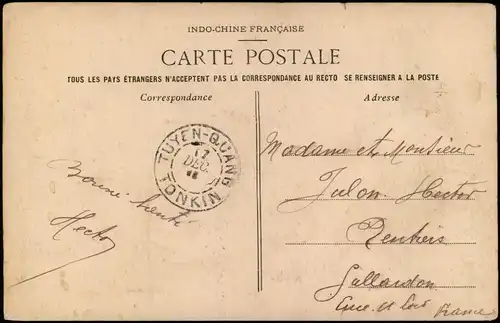 INDO-CHINE FRANÇAISE
CARTE POSTALE
TOUS LES PAYS ÉTRANGERS N'ACCEPTENT PAS LA CORRESPONDANCE AU RECTO SE RENSEIGNER A LA POSTE
Correspondance
Adresse
TUYEN-QUANG
17
DEC.
TONKIN
Bonne santé
Hector
Madame et Monsieur
Julon Hector
Rentiers
Gallardon
Eure et Loir France